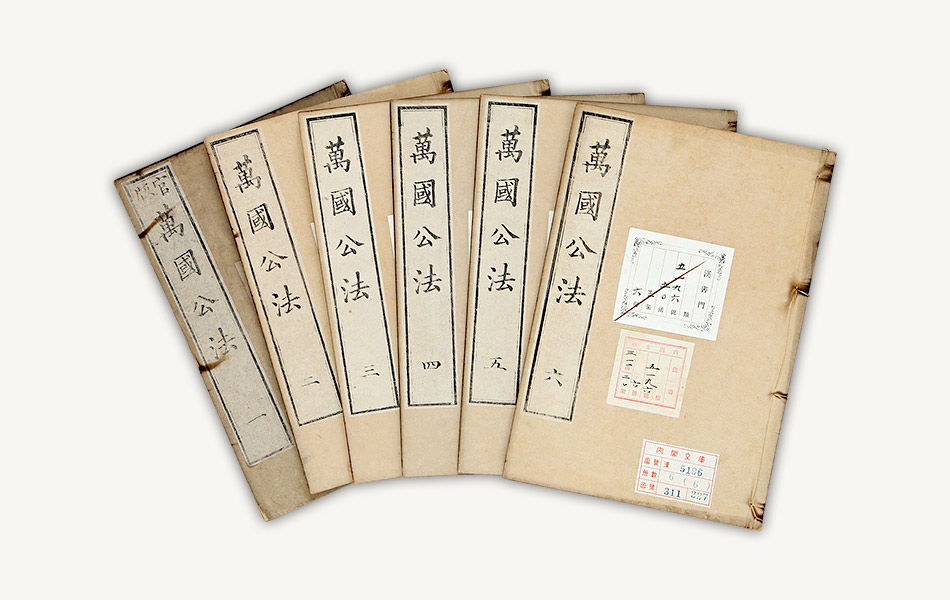 官版
萬國公法 一
萬國公法 二
萬國公法 三
萬國公法 四
萬國公法 五
萬國公法 六
漢書門
五一九六號
類
五一九六
內閣文庫
番號 漢 5196
冊數 6 (6)
函號 311 227